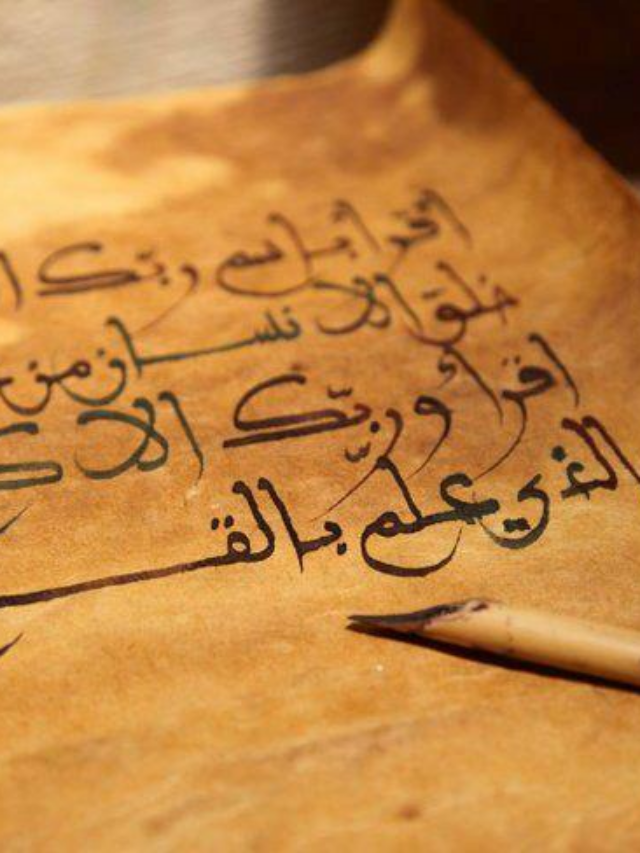 اقرأ باسم ربك
خلق الانسان من
اقرأ وربك الاك
الذي علم بالقـ